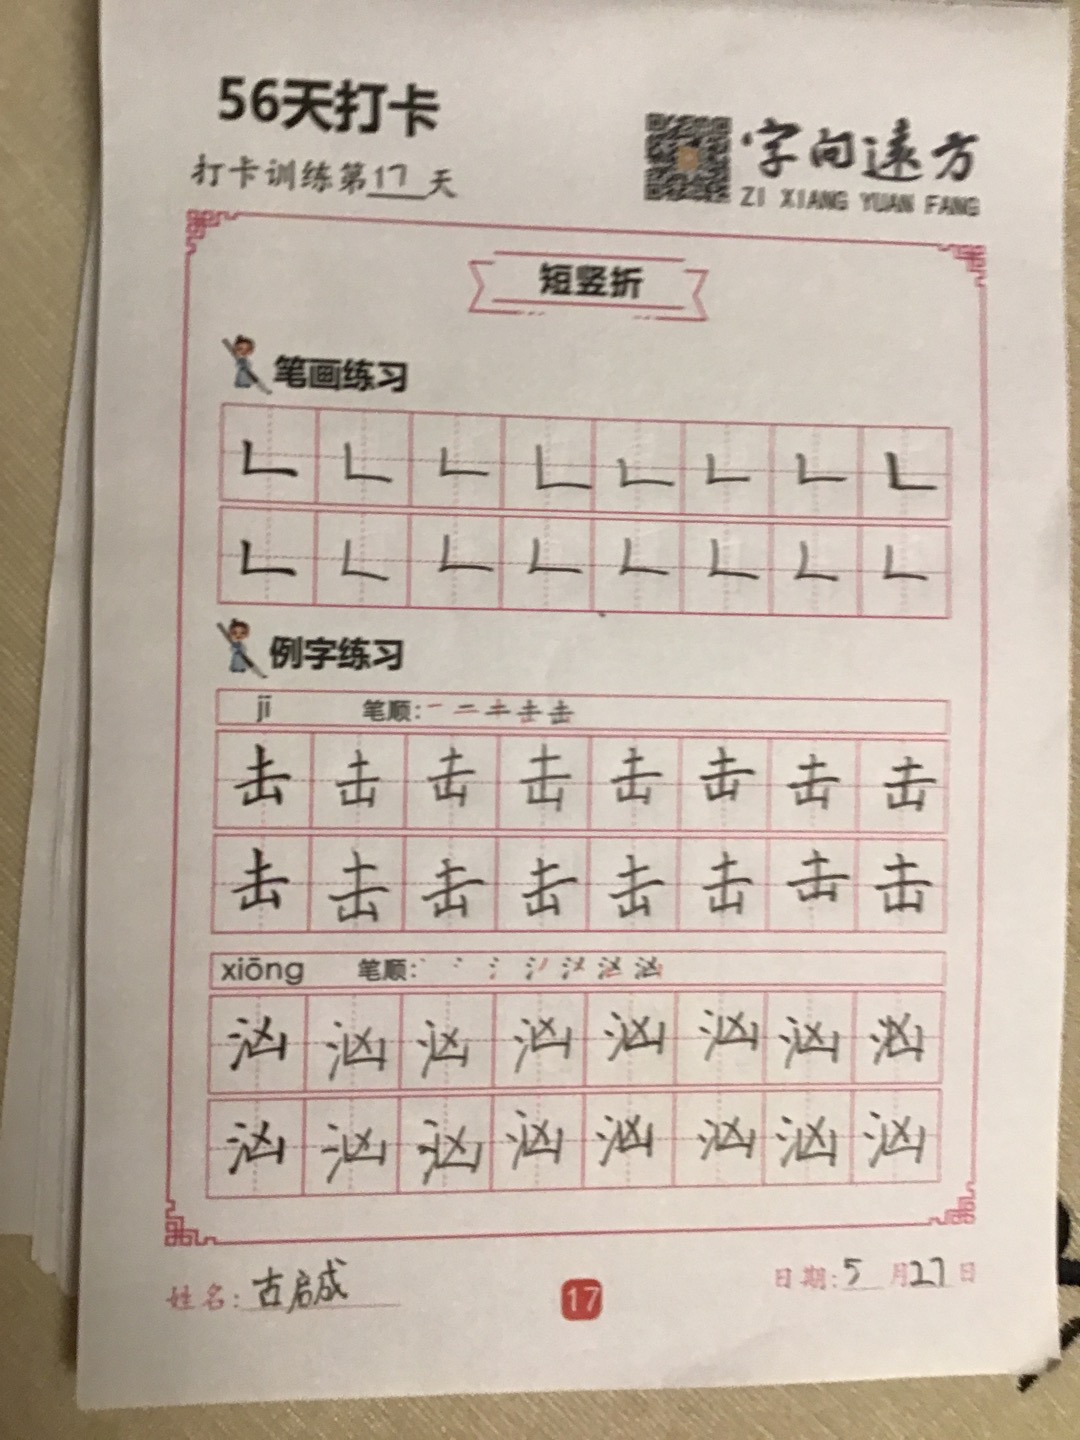 56天打卡
打卡训练第17天
字向远方
ZI XIANG YUAN FANG
短竖折
笔画练习
𠃊 𠃊 𠃊 𠃊 𠃊 𠃊 𠃊 𠃊
𠃊 𠃊 𠃊 𠃊 𠃊 𠃊 𠃊 𠃊
例字练习
jī 笔顺:
击 击 击 击 击 击 击 击
击 击 击 击 击 击 击 击
xiōng 笔顺:
汹 汹 汹 汹 汹 汹 汹 汹
汹 汹 汹 汹 汹 汹 汹 汹
姓名:古启成
17
日期:5月27日